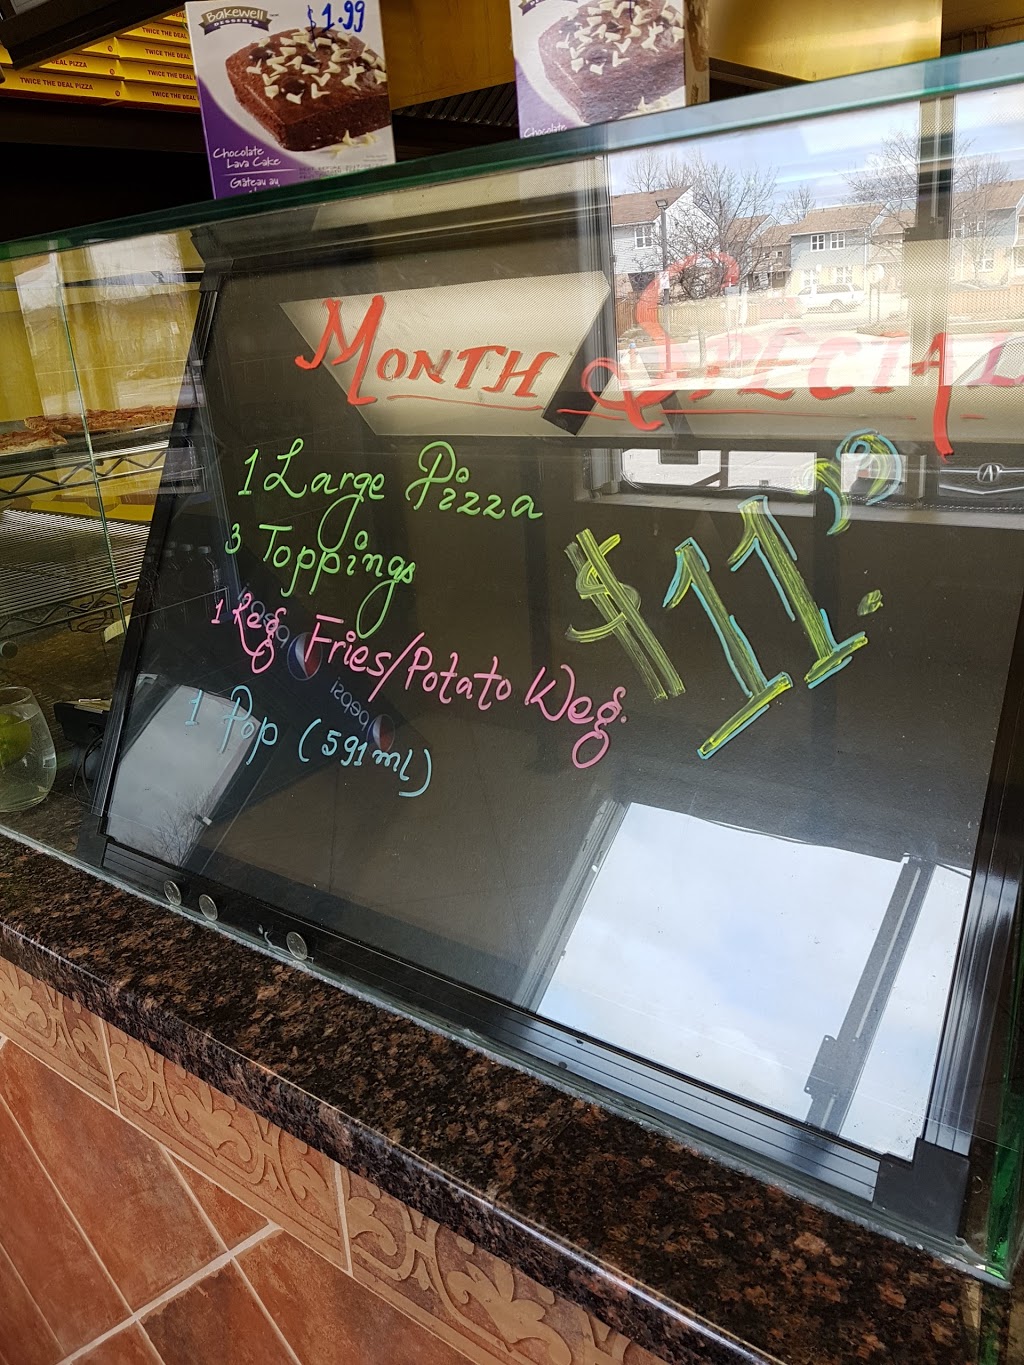 Bakewell
DESSERTS
$1.99
Chocolate
Lava Cake
Gâteau au
Chocolate
TWICE THE DEAL PIZZA
TWICE THE DEAL
MONTH SPECIAL
1 Large Pizza
3 Toppings
1 Reg Fries/Potato Weg.
1 Pop (591ml)
$11
pepsi
pepsi